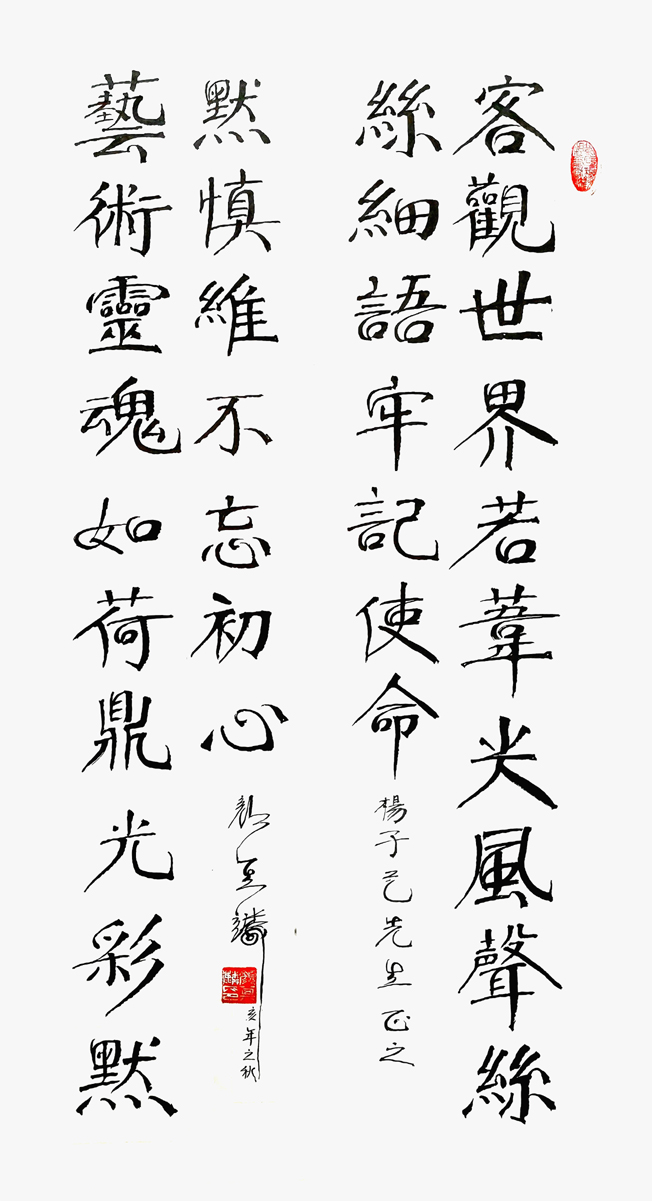 客觀世界若葦尖風聲絲
絲細語牢記使命
楊子先生正之
藝術靈魂如荷鼎光彩默
默慎維不忘初心
亥年之秋